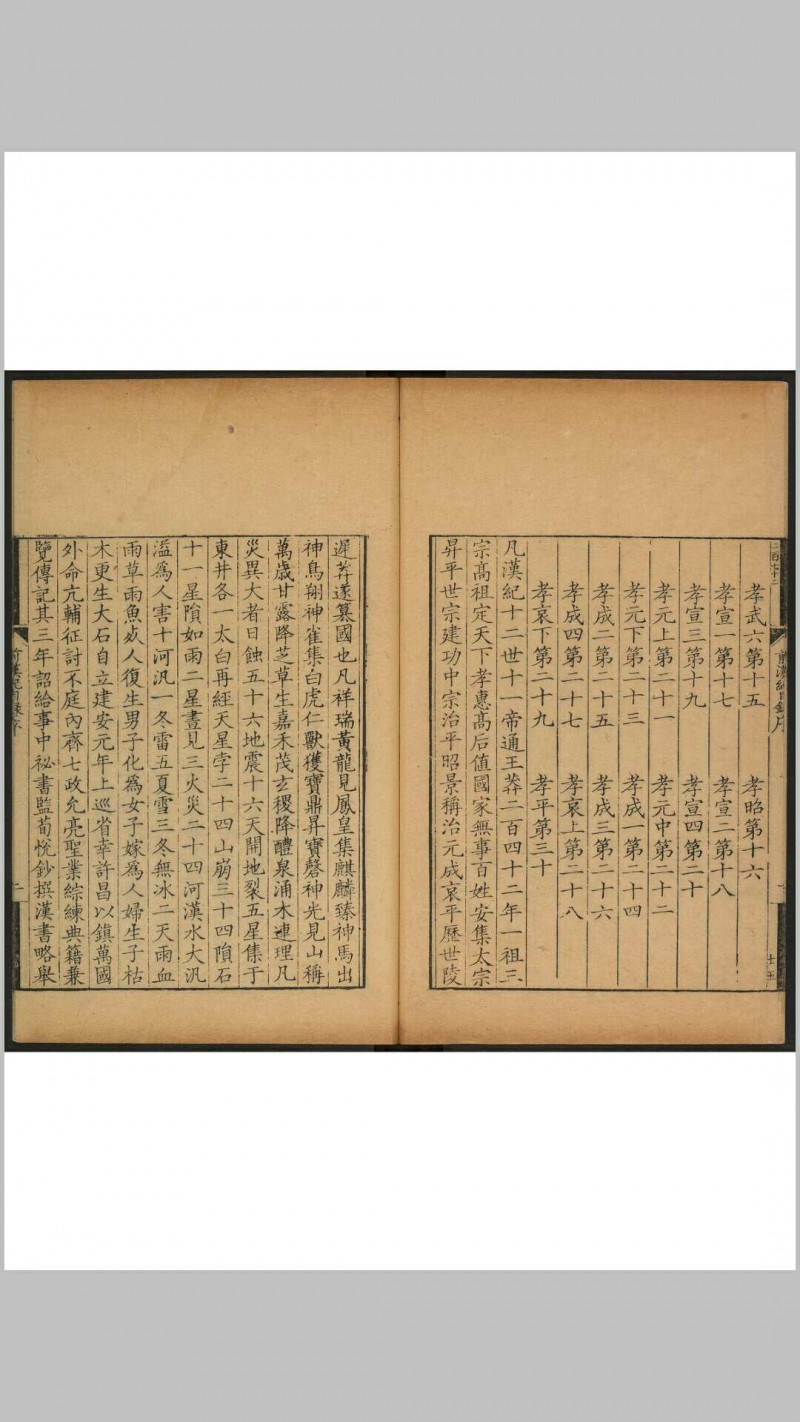 孝武六第十五 孝昭第十六
孝宣一第十七 孝宣二第十八
孝宣三第十九 孝宣四第二十
孝元上第二十一 孝元中第二十二
孝元下第二十三 孝成一第二十四
孝成二第二十五 孝成三第二十六
孝成四第二十七 孝哀上第二十八
孝哀下第二十九 孝平第三十
凡漢紀十二世十一帝通王莽二百四十二年一祖三
宗髙祖定天下孝惠髙后值國家無事百姓安集太宗
昇平世宗建功中宗治平昭景稱治元成哀平歷世陵
遲莽遂篡國也凡祥瑞黃龍見鳳皇集麒麟臻神馬出
神鳥翔神雀集白虎仁獸獲寶鼎昇寶磬神光見山稱
萬歲甘露降芝草生嘉禾茂玄稷降醴泉涌木連理凡
災異大者日蝕五十六地震十六天開地裂五星集于
東井各一太白再經天星孛二十四山崩三十四隕石
十一星隕如雨二星晝見三火災二十四河漢水大汎
溢爲人害十河汎一冬雷五夏雪三冬無冰二天雨血
雨草雨魚死人復生男子化爲女子嫁爲人婦生子枯
木更生大石自立建安元年上巡省幸許昌以鎮萬國
外命亢輔征討不庭內齊七政允亮聖業綜練典籍兼
覽傳記其三年詔給事中祕書監荀悅鈔撰漢書略舉